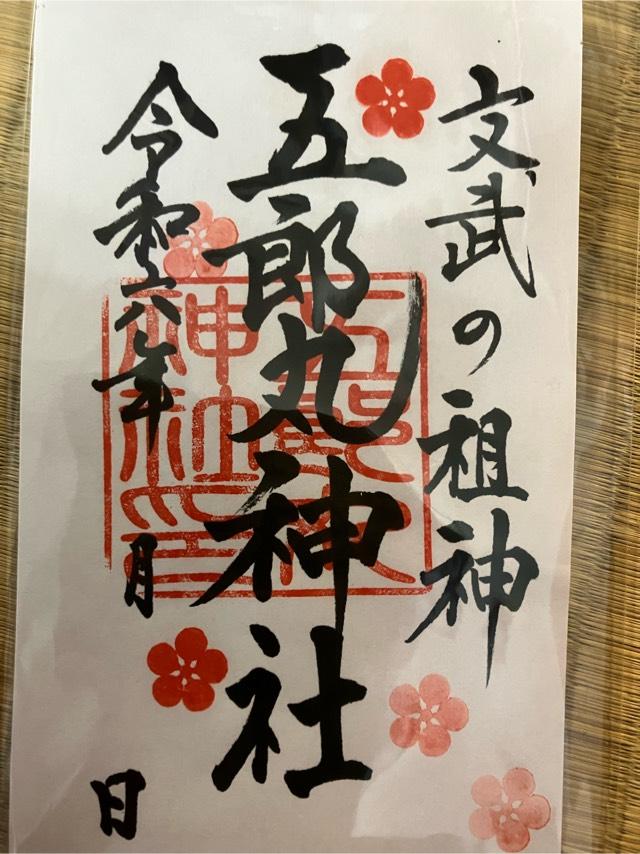 文武の祖神
五郎丸神社
令和六年 月 日
五郎丸
神社印